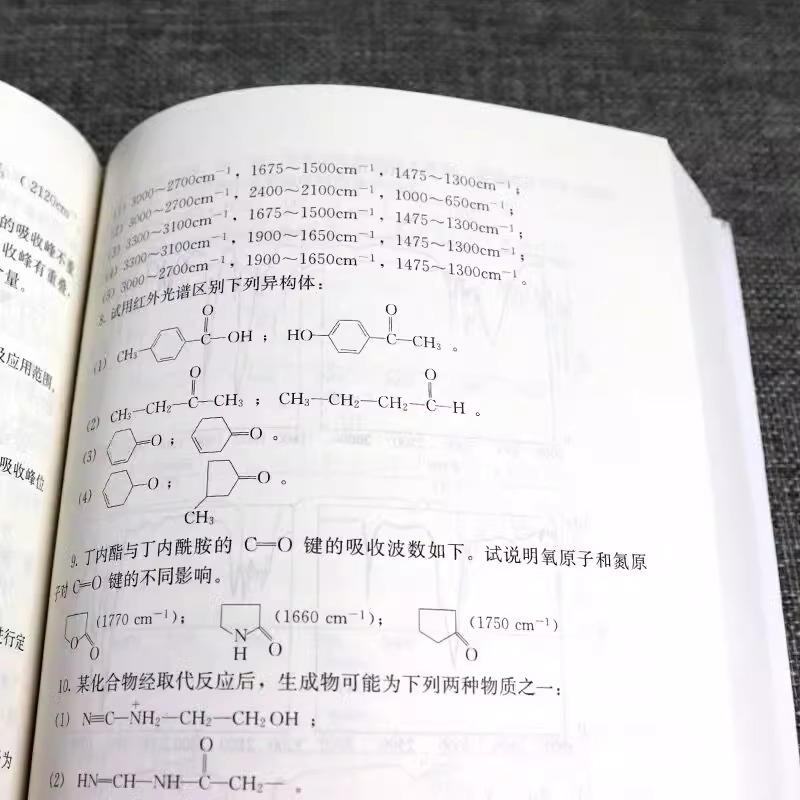 （2120cm
的吸收峰不重
收峰有重叠，
量。
及应用范围。
吸收峰位
进行定
为
(1) 3000～2700cm⁻¹，1675～1500cm⁻¹，1475～1300cm⁻¹；
(2) 3000～2700cm⁻¹，2400～2100cm⁻¹，1000～650cm⁻¹；
(3) 3300～3100cm⁻¹，1675～1500cm⁻¹，1475～1300cm⁻¹；
(4) 3300～3100cm⁻¹，1900～1650cm⁻¹，1475～1300cm⁻¹；
(5) 3000～2700cm⁻¹，1900～1650cm⁻¹，1475～1300cm⁻¹。
8. 试用红外光谱区别下列异构体：
O O
(1) CH₃ C—OH； HO C—CH₃。
O O
(2) CH₃—CH₂—C—CH₃； CH₃—CH₂—CH₂—C—H。
(3) ═O； ═O。
(4) —O； ═O。
CH₃
9. 丁内酯与丁内酰胺的 C═O 键的吸收波数如下。试说明氧原子和氮原
子对 C═O 键的不同影响。
O O (1770 cm⁻¹)； N H O (1660 cm⁻¹)； O (1750 cm⁻¹)
10. 某化合物经取代反应后，生成物可能为下列两种物质之一：
(1) N≡C—N⁺H₂—CH₂—CH₂OH；
O
(2) HN═CH—NH—C—CH₂—。